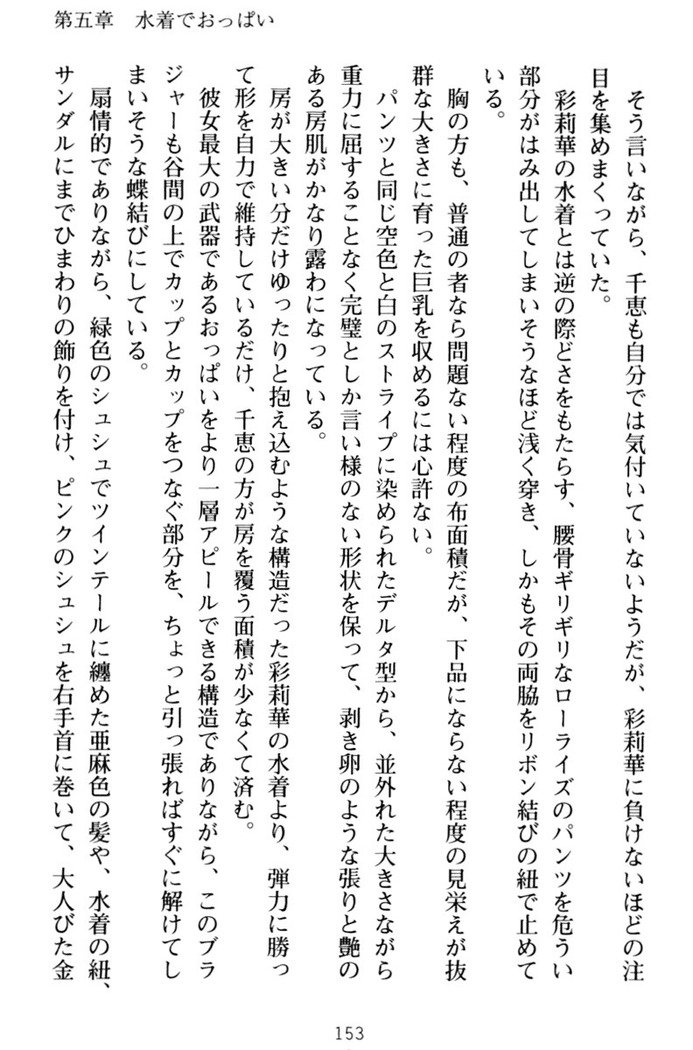 第五章　水着でおっぱい
そう言いながら、千恵も自分では気付いていないようだが、彩莉華に負けないほどの注
目を集めまくっていた。
彩莉華の水着とは逆の際どさをもたらす、腰骨ギリギリなローライズのパンツを危うい
部分がはみ出してしまいそうなほど浅く穿き、しかもその両脇をリボン結びの紐で止めて
いる。
胸の方も、普通の者なら問題ない程度の布面積だが、下品にならない程度の見栄えが抜
群な大きさに育った巨乳を収めるには心許ない。
パンツと同じ空色と白のストライプに染められたデルタ型から、並外れた大きさながら
重力に屈することなく完璧としか言い様のない形状を保って、剥き卵のような張りと艶の
ある房肌がかなり露わになっている。
房が大きい分だけゆったりと抱え込むような構造だった彩莉華の水着より、弾力に勝っ
て形を自力で維持しているだけ、千恵の方が房を覆う面積が少なくて済む。
彼女最大の武器であるおっぱいをより一層アピールできる構造でありながら、このブラ
ジャーも谷間の上でカップとカップをつなぐ部分を、ちょっと引っ張ればすぐに解けてし
まいそうな蝶結びにしている。
扇情的でありながら、緑色のシュシュでツインテールに纏めた亜麻色の髪や、水着の紐、
サンダルにまでひまわりの飾りを付け、ピンクのシュシュを右手首に巻いて、大人びた金
153